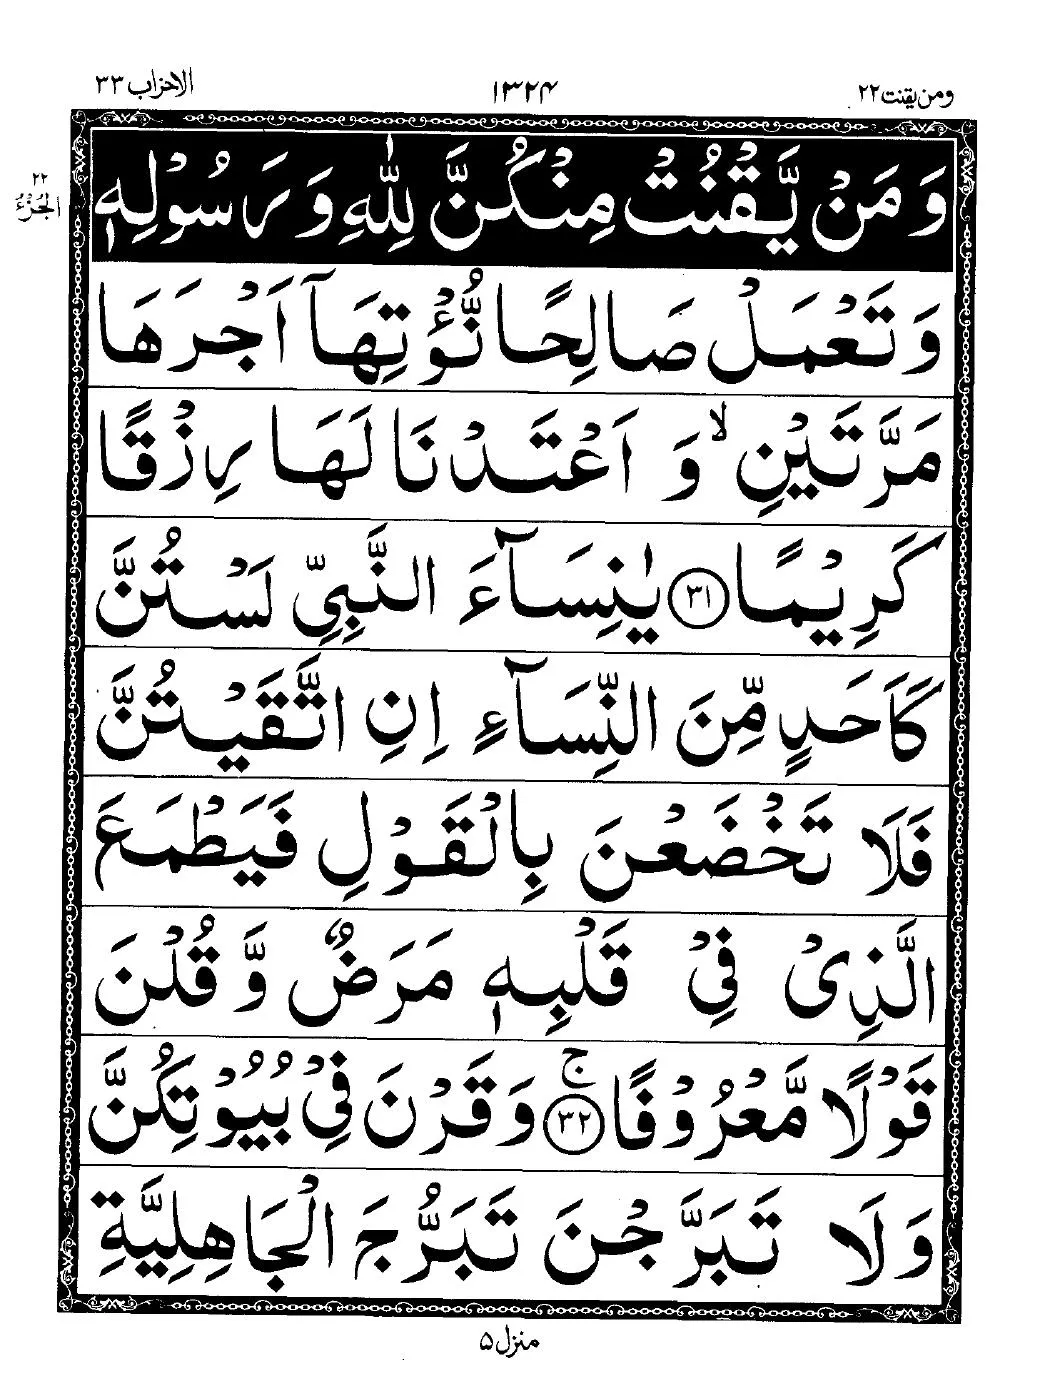 ومن یقنت ۲۲
۱۳۲۴
الاحزاب ۳۳
وَ مَنْ یَّقْنُتْ مِنْکُنَّ لِلّٰهِ وَ رَسُوْلِهٖ
۲۲
الجزء
وَ تَعْمَلْ صَالِحًا نُّؤْتِهَاۤ اَجْرَهَا
مَرَّتَیْنِ ۙ وَ اَعْتَدْنَا لَهَا رِزْقًا
کَرِیْمًا ﴿۳۱﴾ یٰنِسَآءَ النَّبِیِّ لَسْتُنَّ
کَاَحَدٍ مِّنَ النِّسَآءِ اِنِ اتَّقَیْتُنَّ
فَلَا تَخْضَعْنَ بِالْقَوْلِ فَیَطْمَعَ
الَّذِیْ فِیْ قَلْبِهٖ مَرَضٌ وَّ قُلْنَ
قَوْلًا مَّعْرُوْفًا ﴿۳۲﴾ۚ وَ قَرْنَ فِیْ بُیُوْتِکُنَّ
وَ لَا تَبَرَّجْنَ تَبَرُّجَ الْجَاهِلِیَّةِ
منزل ۵